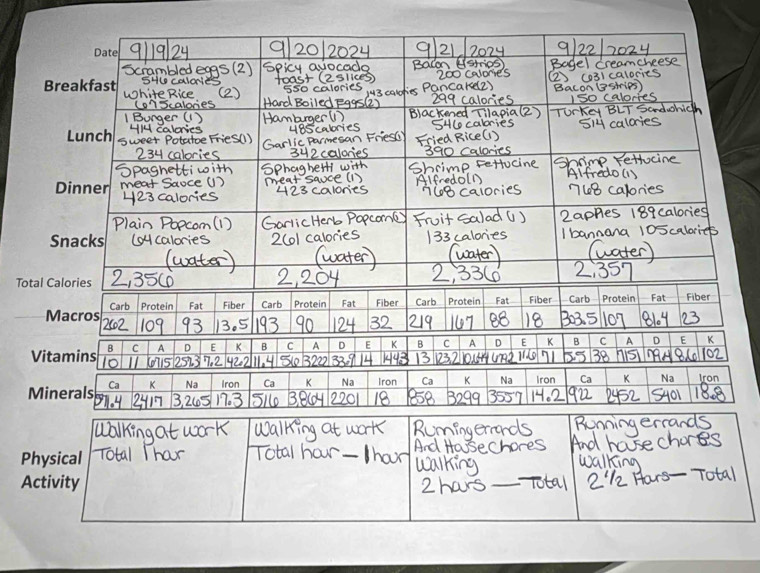 Date 9/19/24 9/20/2024 9/21/2024 9/22/2024
Breakfast
Scrambled eggs (2)
546 calories
White Rice (2)
675 calories
Spicy avocado
toast (2 slices)
550 calories
143 calories
Hard Boiled Eggs (2)
Bacon (4 strips)
200 calories
Pancake(2)
299 calories
Bagel creamcheese
(2) 631 calories
Bacon (3 strips)
150 calories
Lunch
1 Burger (1)
414 calories
Sweet Potatoe Fries(1)
234 calories
Hamburger (1)
485 calories
Garlic Parmesan Fries(1)
342 calories
Blackened Tilapia (2)
546 calories
Fried Rice (1)
390 calories
Turkey BLT Sandwhich
514 calories
Dinner
Spaghetti with
meat Sauce (1)
423 calories
Sphaghetti with
meat sauce (1)
423 calories
Shrimp Fettucine
Alfredo(1)
768 calories
Shrimp Fettucine
Alfredo (1)
768 calories
Snacks
Plain Popcorn (1)
64 calories
(water)
Garlic Herb Popcorn(1)
261 calories
(water)
Fruit Salad (1)
133 calories
(water)
2 apples 189 calories
1 bannana 105 calories
(water)
Total Calories 2,356 2,204 2,336 2,357
Macros
Carb Protein Fat Fiber Carb Protein Fat Fiber Carb Protein Fat Fiber Carb Protein Fat Fiber
262 109 93 13.5 193 90 124 32 219 167 88 18 303.5 107 81.4 23
Vitamins
B C A D E K B C A D E K B C A D E K B C A D E K
10 11 6715 7.2 42.2 11.4 56 3222 14 13 71 5.5 38 8.6 102
Minerals
Ca K Na Iron Ca K Na Iron Ca K Na Iron Ca K Na Iron
2417 3,265 17.3 516 3,864 2201 18 858 3299 3557 14.2 922 2452 5401 18.8
Physical
Activity
Walking at work
Total 1 hour
Walking at work
Total hour — 1 hour
Running errands
And House Chores
Walking
2 hours — Total
Running errands
And house chores
Walking
2 1/2 Hars — Total